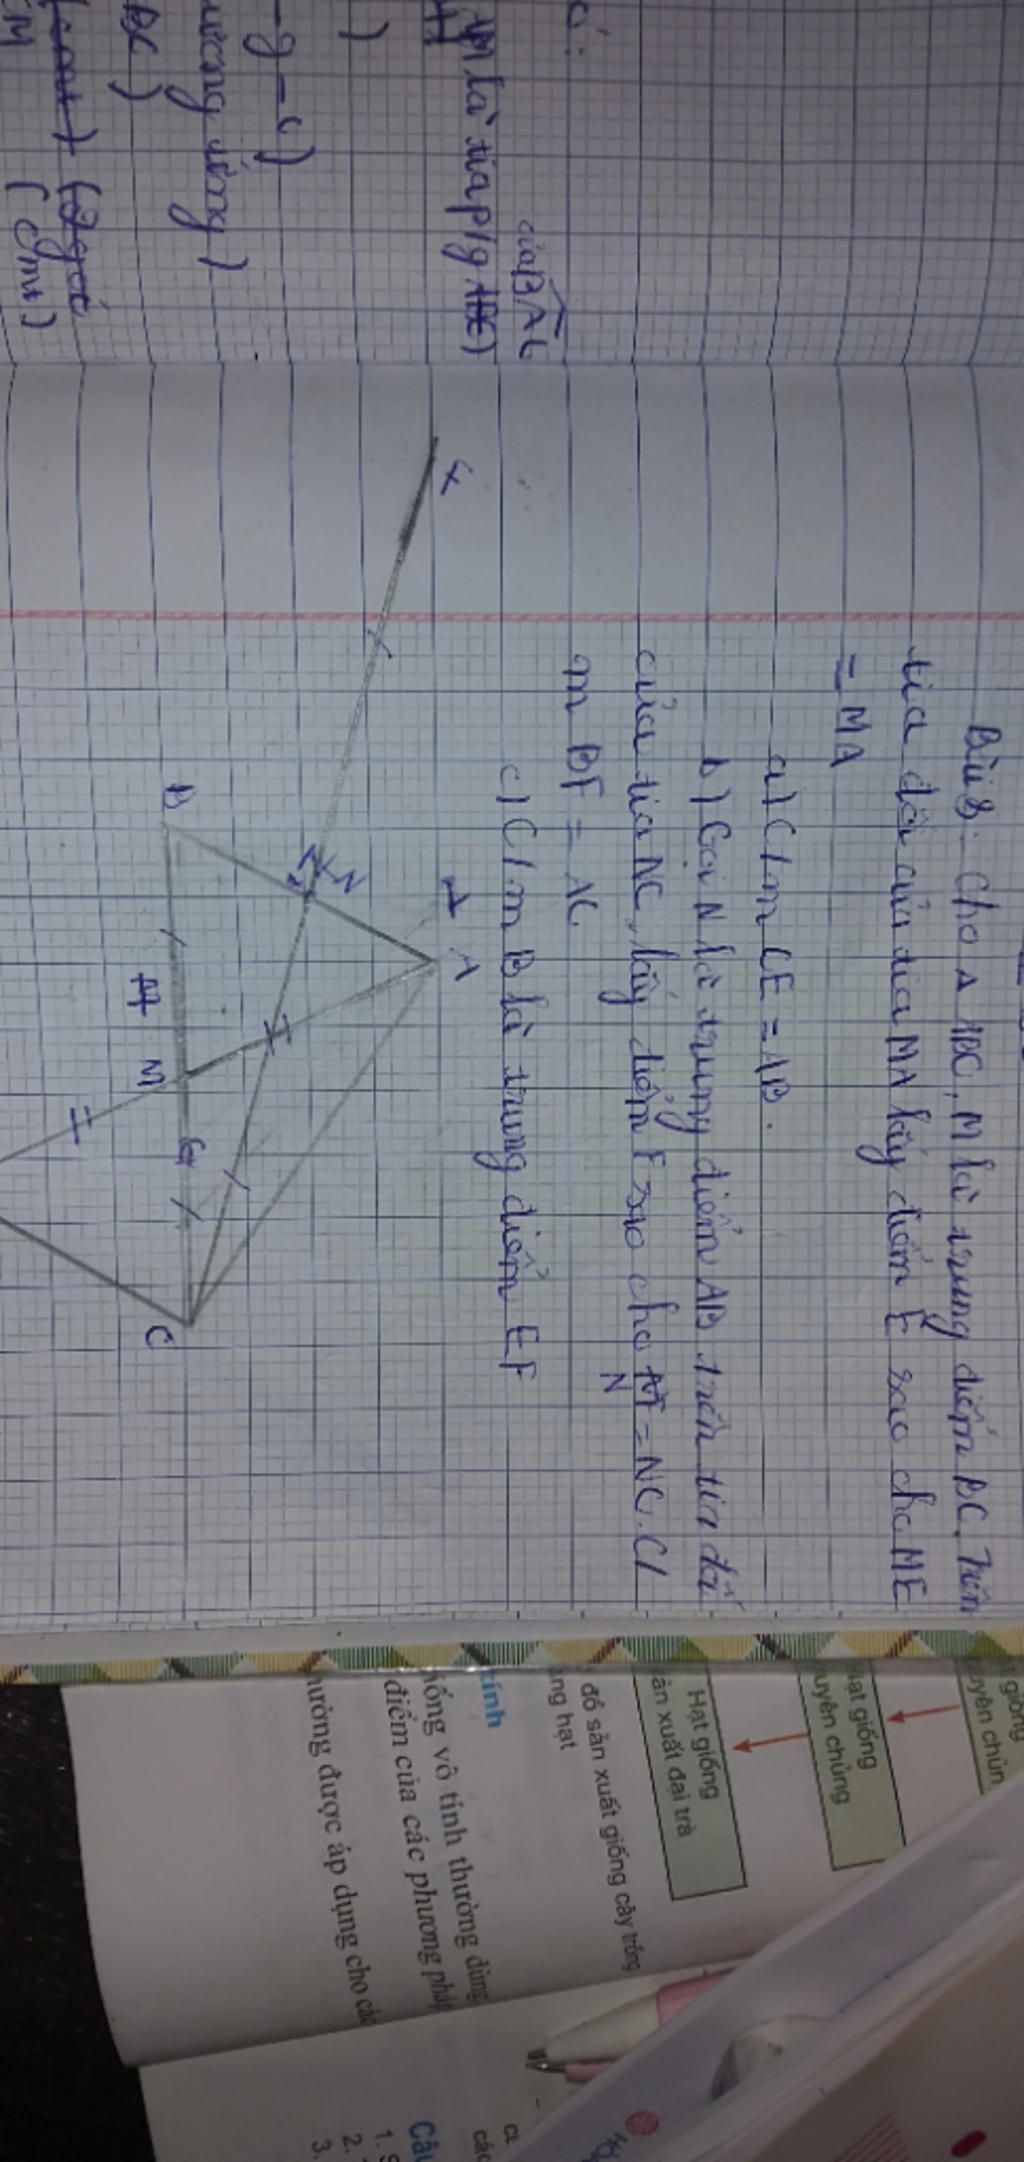 M là tia p/g ABC)
của BAC
- g - c)
ương ứng)
BC)
(cmt) (2 góc
(cmt)
Bài 8: Cho Δ ABC, M là trung điểm BC. Trên
tia đối của tia MA lấy điểm E sao cho ME
= MA
a) C/m CE = AB.
b) Gọi N là trung điểm AB trên tia đối
của tia NC, lấy điểm F sao cho NF = NC. C/
m BF = AC.
c) C/m B là trung điểm EF
F
A
A
N
B
M
M
G
C
t giống
uyên chủn
ạt giống
uyên chủng
Hạt giống
ản xuất đại trà
đồ sản xuất giống cây trồng
ng hạt
tính
ống vô tính thường dùng
điểm của các phương pháp
ưởng được áp dụng cho các
Câu
1.
2.
3.